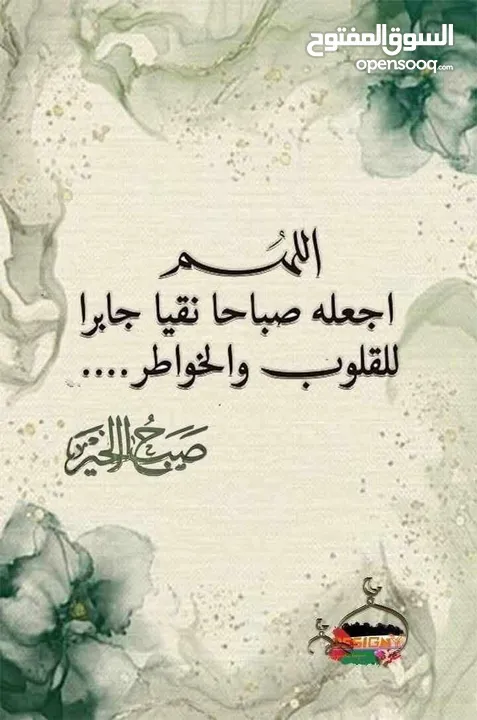 السوق المفتوح
opensooq.com
اللهم
اجعله صباحا نقيا جابرا
للقلوب والخواطر....
صباح الخير